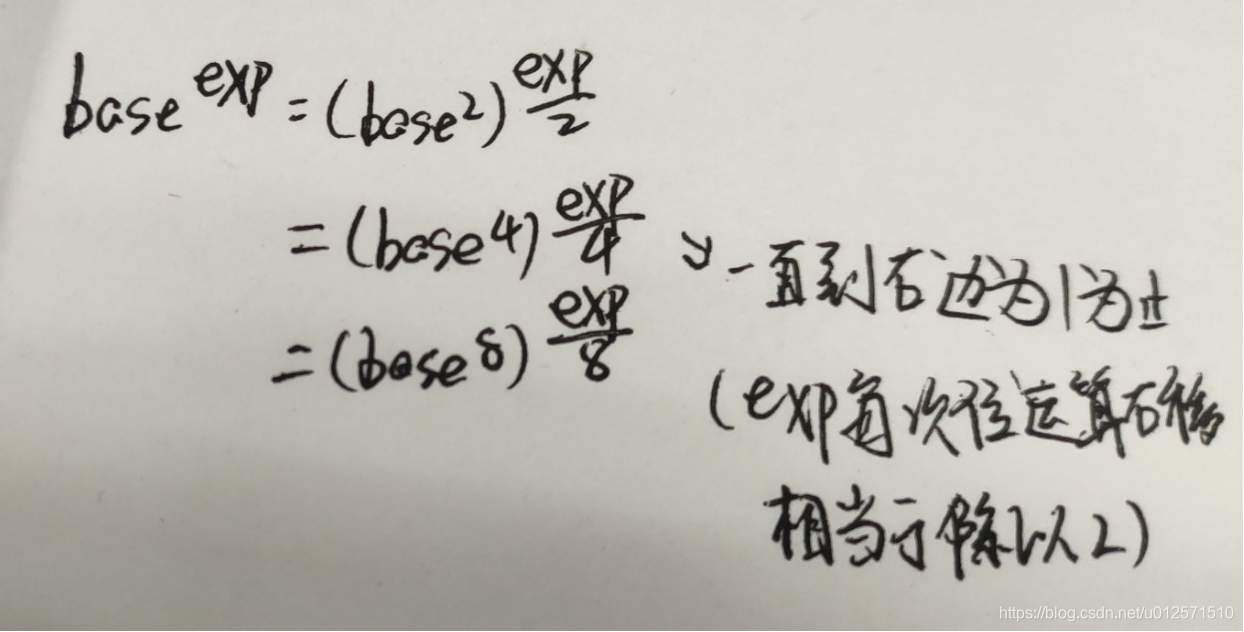 base^exp = (base^2)^(exp/2)
= (base^4)^(exp/4)
一直到右边为1为止
= (base^8)^(exp/8)
(exp每次位运算右移
相当于除以2)
https://blog.csdn.net/u012571510